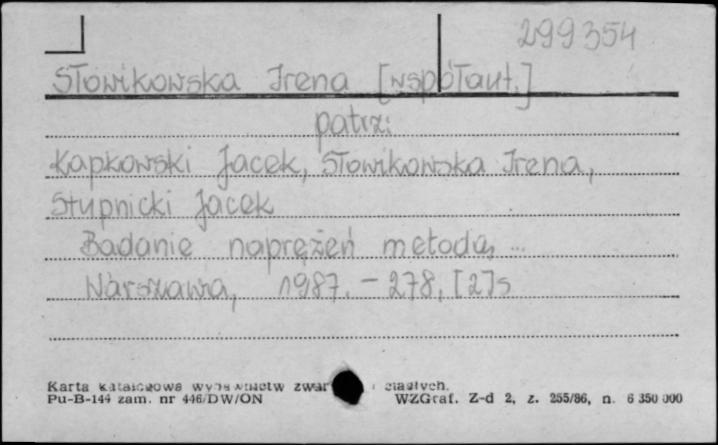 299354
Słowikowska Irena [współaut.]
patrz:
Kapkowski Jacek, Słowikowska Irena,
Stupnicki Jacek
Badanie naprężeń metodą ...
Warszawa, 1987. – 278, [2]s
Karta katalogowa wydawnictw zwar ciągłych.
Pu-B-144 zam. nr 446/DW/ON WZGraf. Z-d 2, z. 255/86, n. 6 350 000